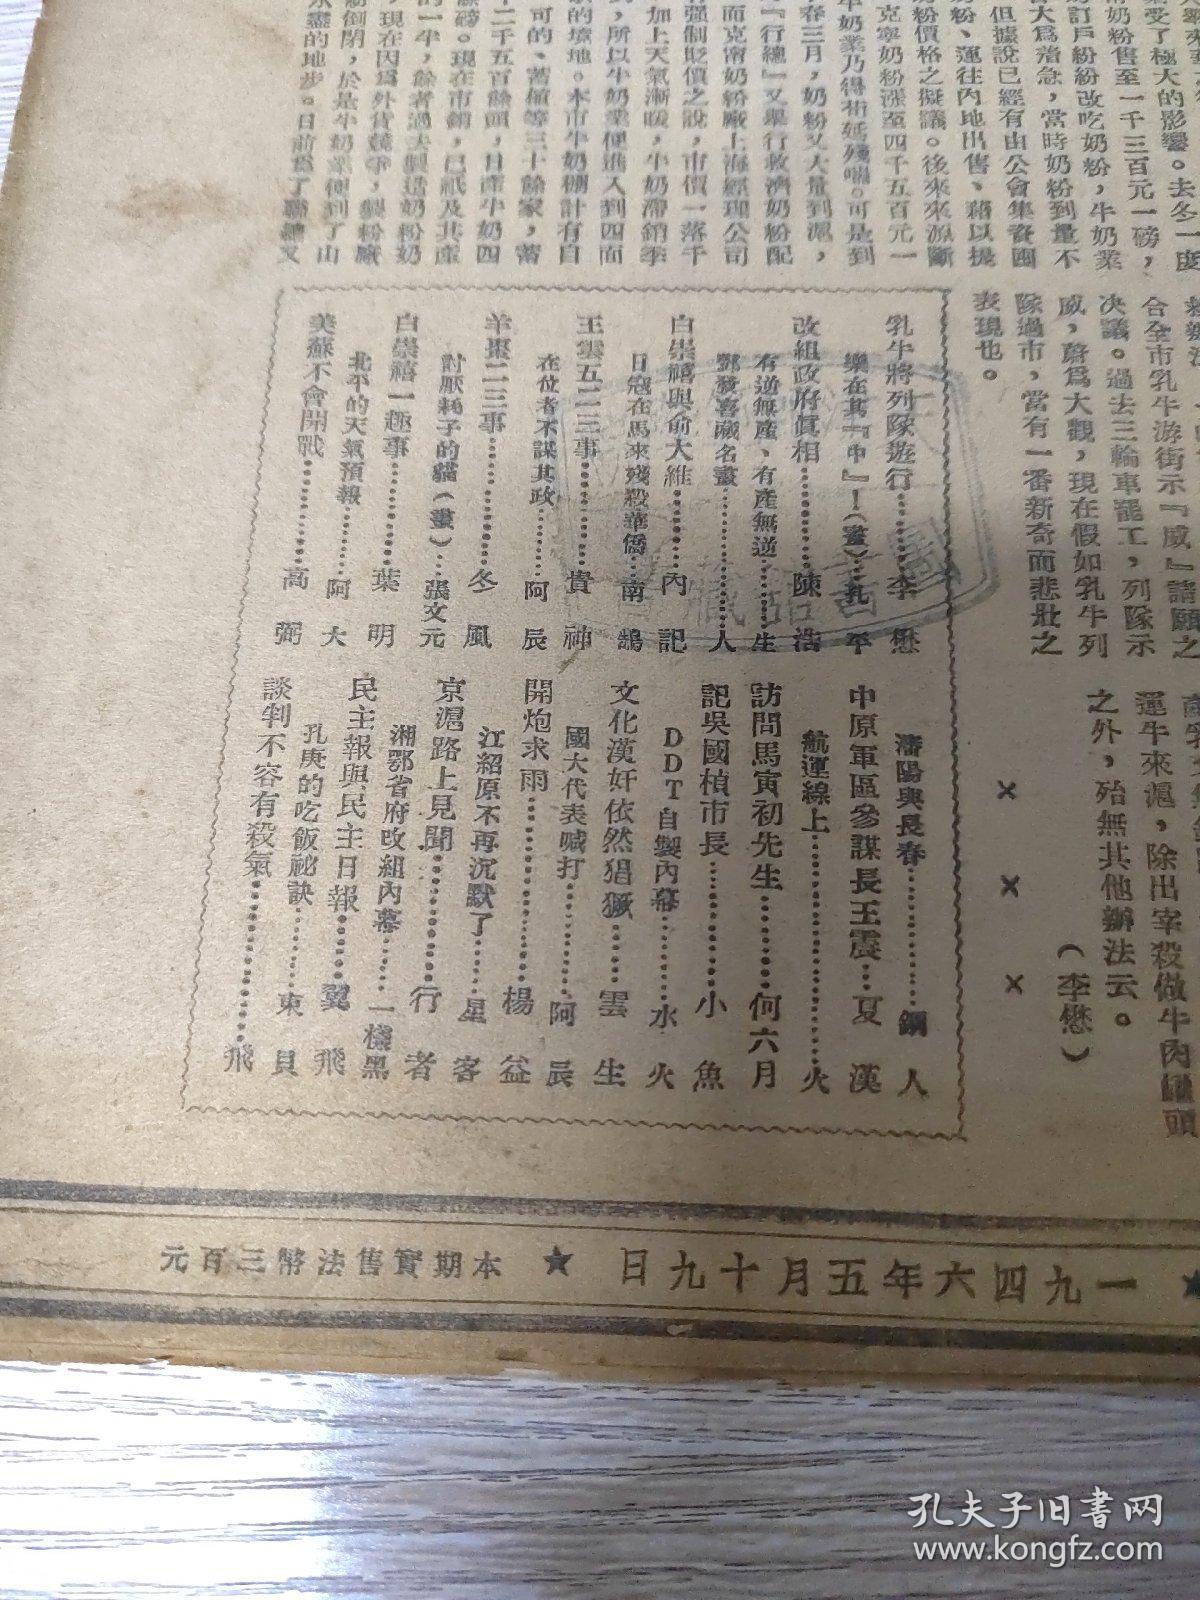 受了極大的影響。去冬一度
奶粉售至一千三百元一磅，
訂戶紛紛改吃奶粉，牛奶業
大爲着急，當時奶粉到量不
但據說已經有由公會集資囤
奶粉、運往內地出售、藉以提
奶粉價格之擬議。後來來源斷
克寧奶粉漲至四千五百元一
牛奶業乃得苟延殘喘。可是到
春三月，奶粉又大量到滬，
『行總』又舉行救濟奶粉配
而克甯奶粉廠上海經理公司
有強制貶價之說，市價一落千
加上天氣漸暖，牛奶滯銷季
，所以牛奶業便進入到四面
的境地。本市牛奶棚計有自
可的、蓄植等三十餘家，蓄
二千五百餘頭，日產牛奶四
餘磅。現在市銷，已祇及其產
的一半，餘者過去製造奶粉奶
，現在因爲外貨競爭，製粉廠
倒閉，於是牛奶業便到了山
水盡的地步。日前爲了聯繪又
合全市乳牛游街示『威』請願之
決議。過去三輪車罷工，列隊示
威，蔚爲大觀，現在假如乳牛列
隊過市，當有一番新奇而悲壯之
表現也。
運牛來滬，除出宰殺做牛肉罐頭
之外，殆無其他辦法云。
（李懋）
× × ×
乳牛將列隊遊行………李懋
樂在其『中』！（畫）…孔平
改組政府眞相………陳浩
有逆無產、有產無逆……生
鄧發喜藏名畫………人
白崇禧與俞大維………內記
日寇在馬來殘殺華僑…南鵠
王雲五二三事………貴神
在位者不謀其政………阿辰
羊棗二三事………冬風
討厭耗子的貓（畫）…張文元
白崇禧一趣事………葉明
北平的天氣預報………阿大
美蘇不會開戰………高弼
瀋陽與長春………鋼人
中原軍區參謀長王震…夏漢
航運線上………火
訪問馬寅初先生………何六月
記吳國楨市長………小魚
DDT自製內幕………水火
文化漢奸依然猖獗……雲生
國大代表喊打………阿辰
開炮求雨………楊益
江紹原不再沉默了……星客
京滬路上見聞………行者
湘鄂省府改組內幕……一樣黑
民主報與民主日報……翼飛
孔庚的吃飯祕訣………東貝
談判不容有殺氣………飛
一九四六年五月十九日 ★ 本期實售法幣三百元
孔夫子旧书网
www.kongfz.com